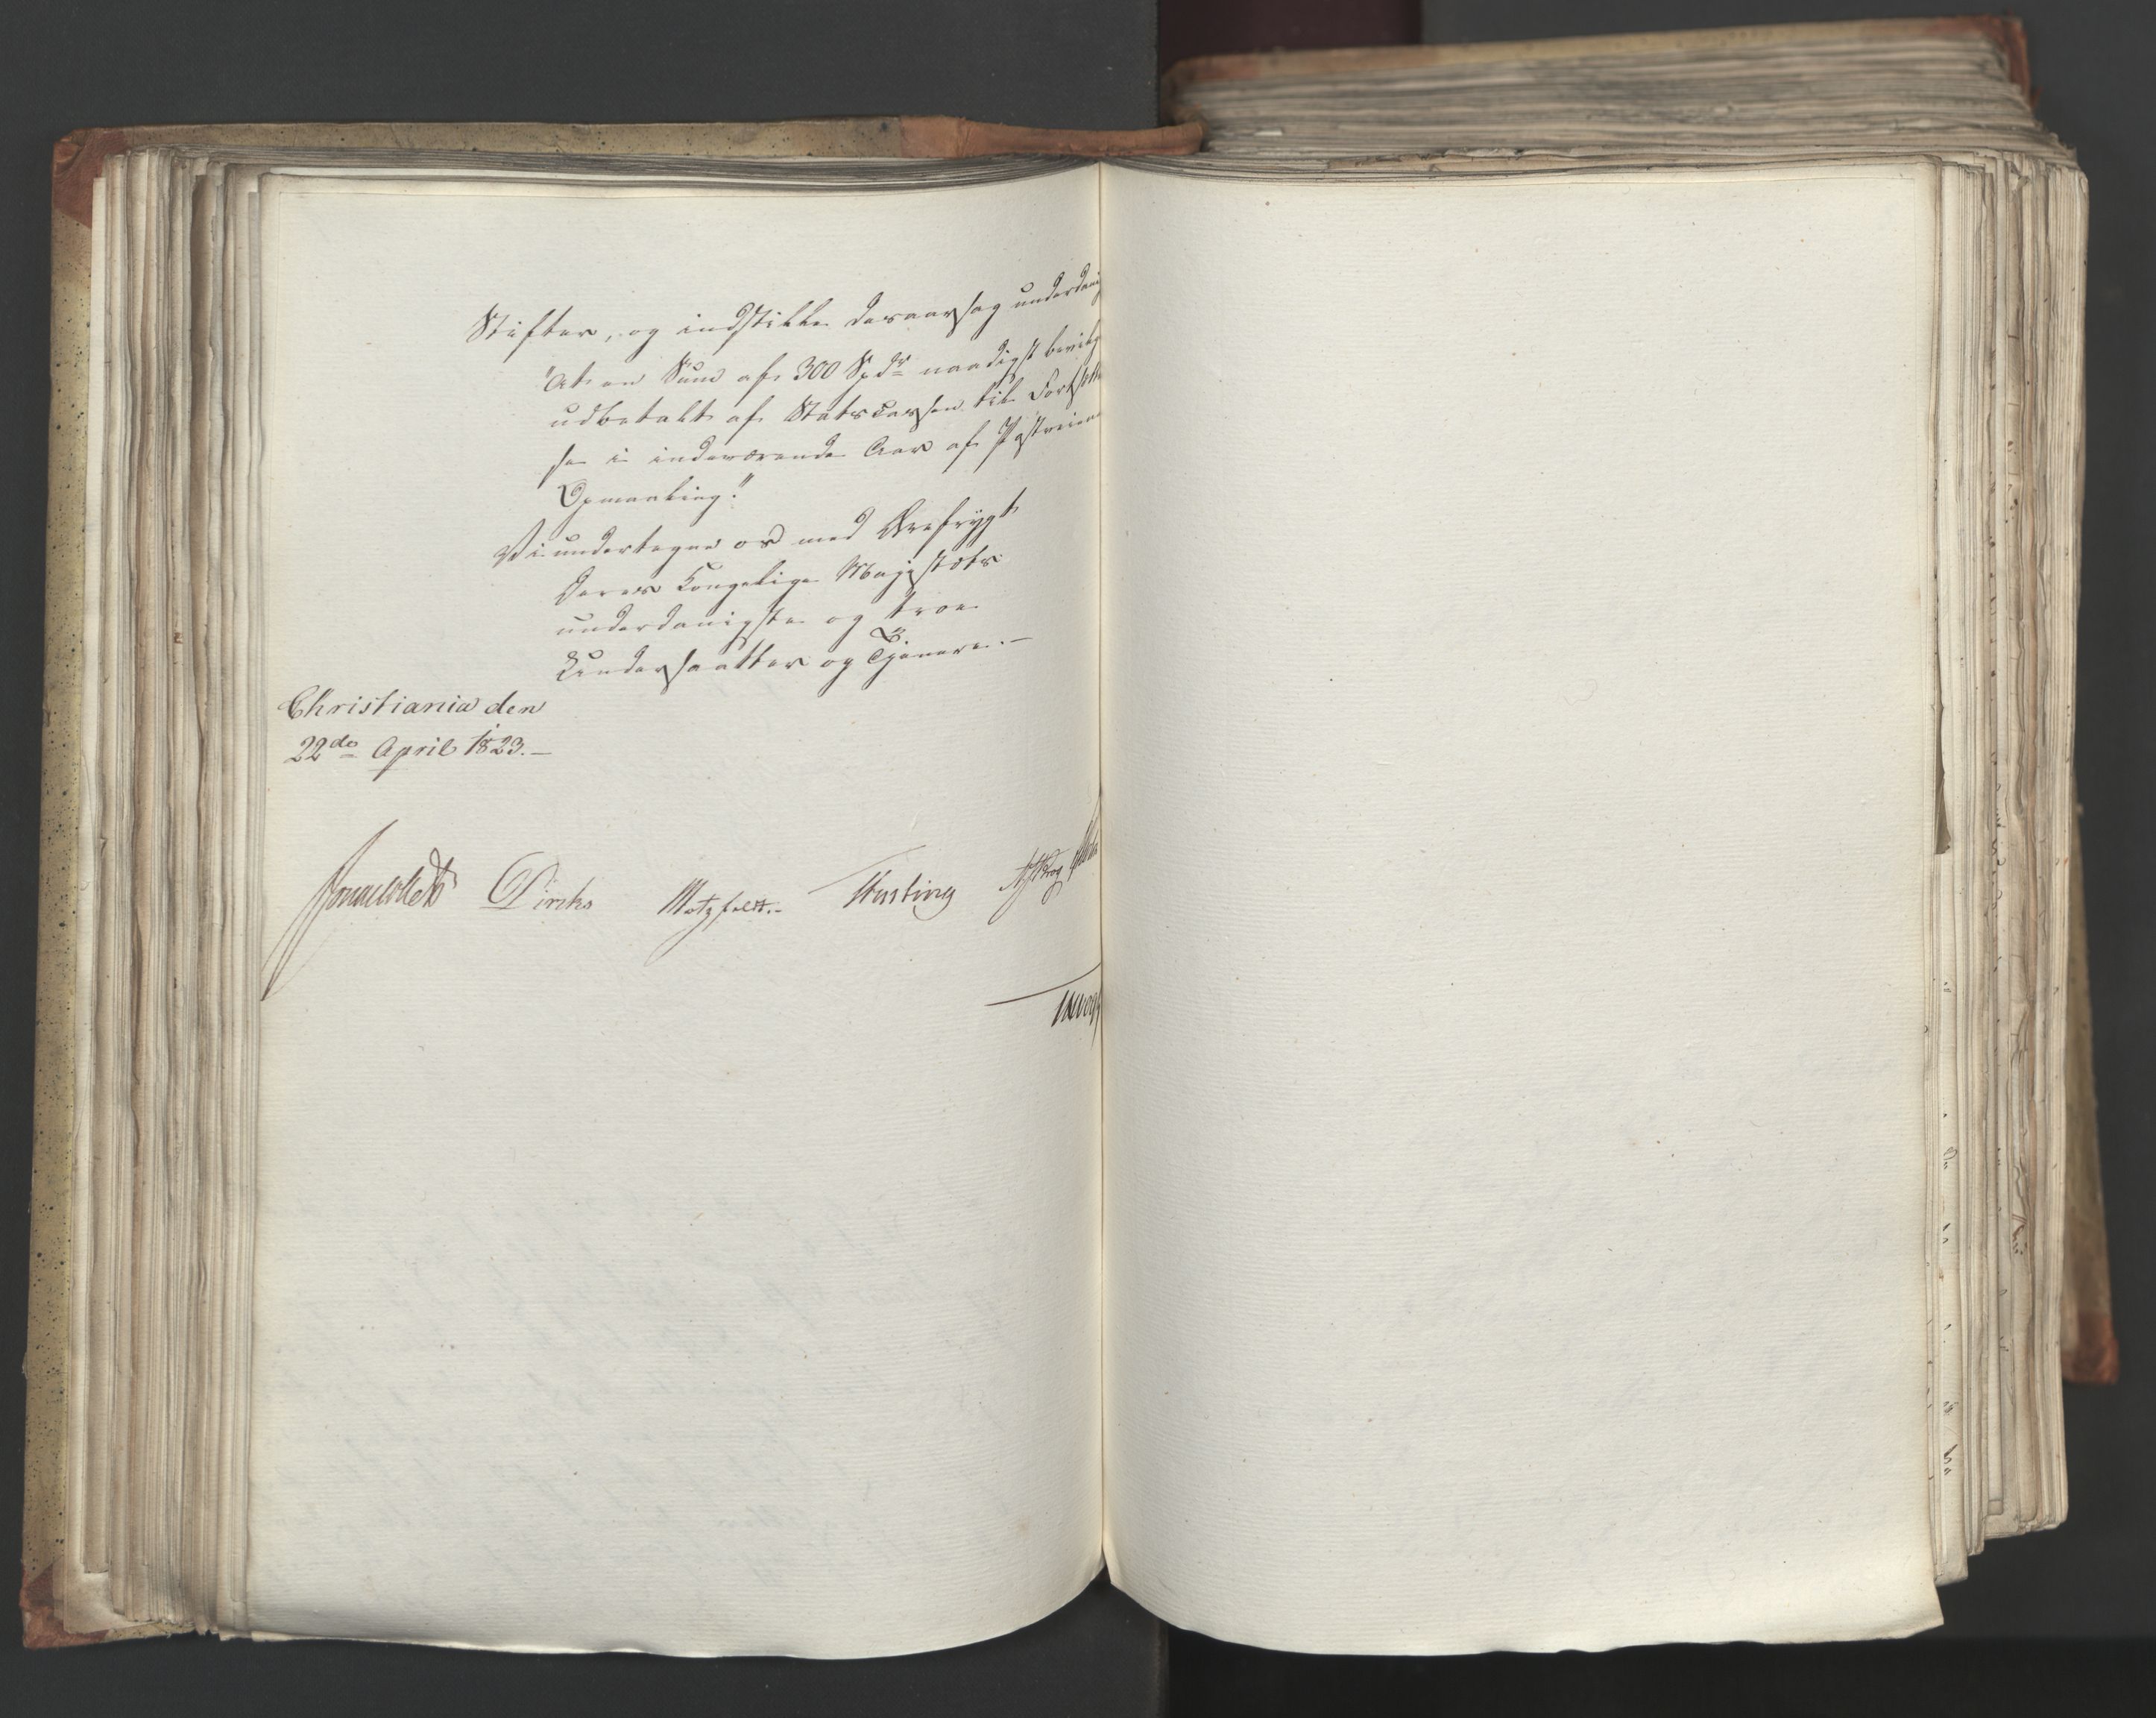 Stifter, og indstille deraarsag underdanig
"At en Sum af 300 Spdr naadigst bevilg
udbetalt af Statscassen til Fortsættel
se i indeværende Aar af Postveiene
Opmaaling."
Vi undertegne os med Ærefrygt
Deres Kongelige Majestæts
underdanigste og troe
Undersaatter og Tjenere.-
Christiania den
22de April 1823.-
Sommerhielm Diriks Motzfeldt.- Fasting